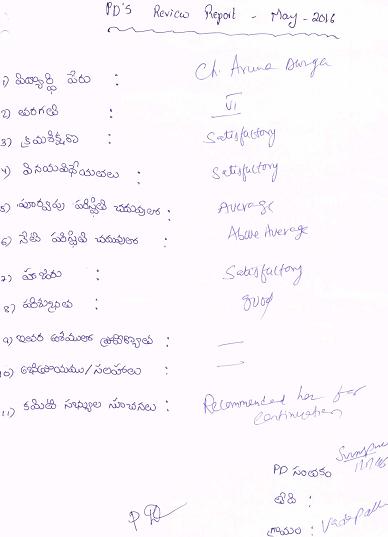 PD'S Review Report - May - 2016
1) విద్యార్థి పేరు : Ch. Aruna Durga
2) తరగతి : VI
3) క్రమశిక్షణ : Satisfactory
4) వినయవిధేయతలు : Satisfactory
5) పూర్వపు పరిస్థితి చదువులో : Average
6) నేటి పరిస్థితి చదువులో : Above Average
7) హాజరు : Satisfactory
8) పరిశుభ్రత : good
9) ఇతర అంశములలో : —
10) అభిప్రాయము/సలహాలు : —
11) కమిటీ సభ్యుల సూచనలు : Recommended her for
continuation
PD సంతకం
తేది :
గ్రామం :
PD